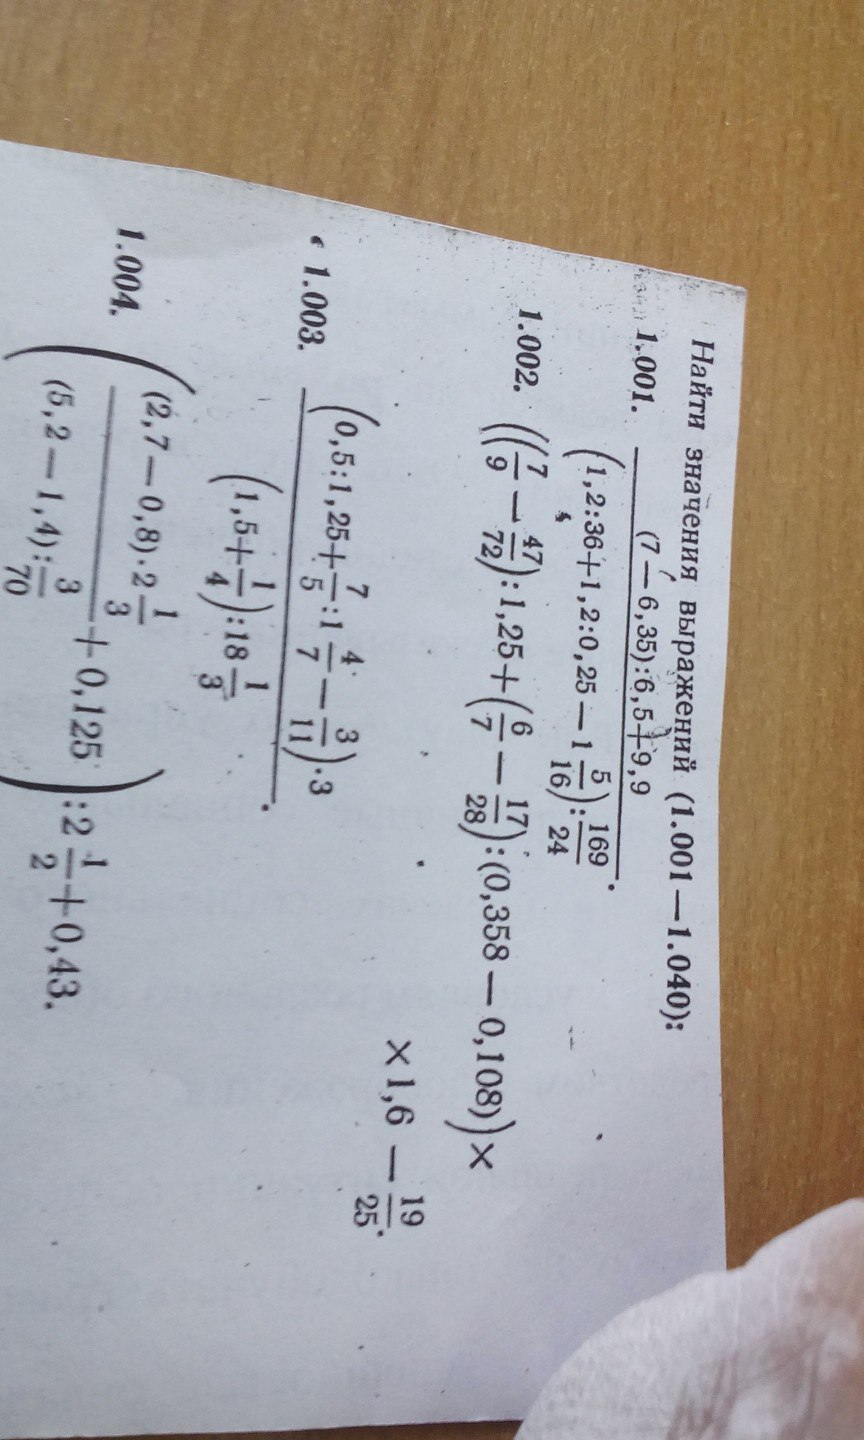 Найти значения выражений (1.001—1.040):
1.001. \frac{(7 — 6,35):6,5+9,9}{(1,2:36+1,2:0,25 — 1\frac{5}{16}):\frac{169}{24}}.
1.002. ((\frac{7}{9} — \frac{47}{72}):1,25+(\frac{6}{7} — \frac{17}{28}):(0,358 — 0,108))×
×1,6 — \frac{19}{25}.
1.003. \frac{(0,5:1,25+\frac{7}{5}:1\frac{4}{7} — \frac{3}{11})·3}{(1,5+\frac{1}{4}):18\frac{1}{3}}.
1.004. (\frac{(2,7 — 0,8)·2\frac{1}{3}}{(5,2 — 1,4):\frac{3}{70}}+0,125):2\frac{1}{2}+0,43.